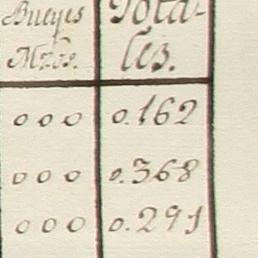 Bueyes Tota-
Mzos. les.
000 0.162
000 0.368
000 0.291